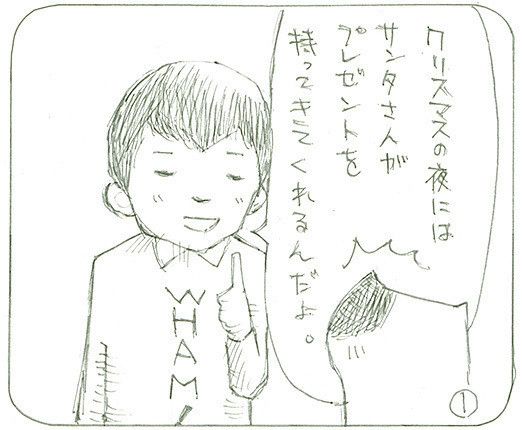 クリスマスの夜には
サンタさんが
プレゼントを
持ってきてくれるんだよ。
WHAM!
①